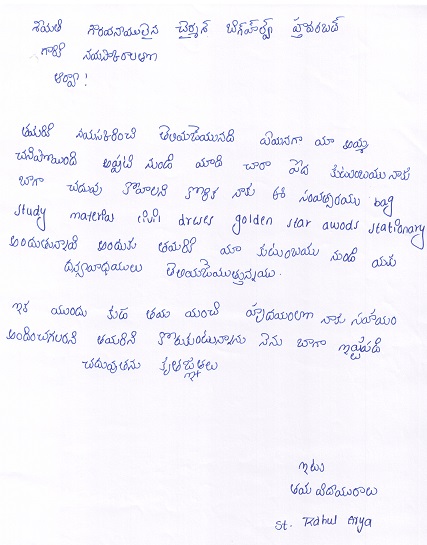 శ్రీయుత గౌరవనీయులైన చైర్మన్ బిగ్‌హెల్ప్ హైదరాబాద్
గారికి నమస్కారాలతో
ఆర్యా!
తమరికి నమస్కరించి తెలియజేయునది ఏమనగా మా అమ్మ
చనిపోయింది అప్పటి నుండి మాది చాలా పేద కుటుంబము నాకు
బాగా చదువు కోవాలని కోరిక నాకు ఈ సంవత్సరము bag
study materials drsses golden star awods stationary
అందుతున్నాయి అందుకు తమరికి మా కుటుంబము నుండి
ధన్యవాదములు తెలియజేయుత్తున్నము.
ఇక ముందు కుడ తమ మంచి హృదయంతో నాకు సహాయం
అందించగలరని తమరిని కోరుకుంటున్నాను నేను బాగా ఇష్టపడి
చదువుతను కృతజ్ఞతలు
ఇట్లు
తమ విదేయురాలు
St. Rahul Arya